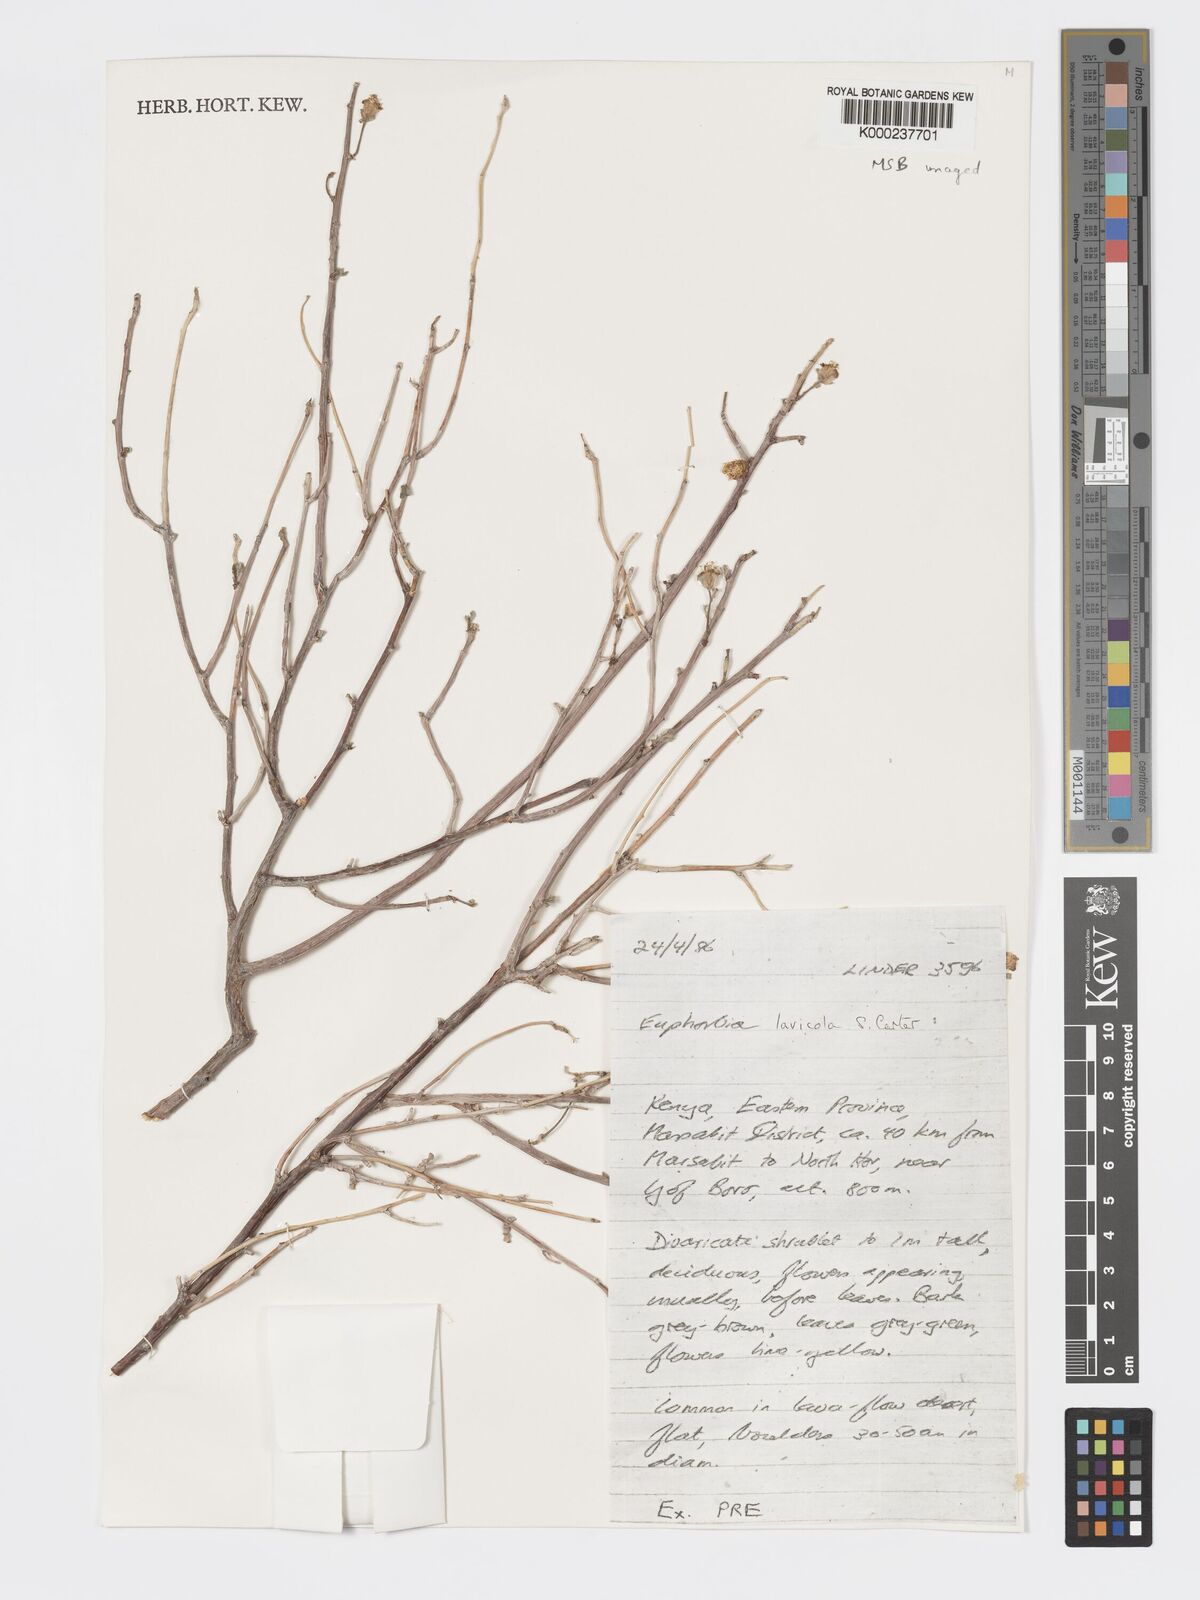 HERB. HORT. KEW.
M
ROYAL BOTANIC GARDENS KEW
K000237701
MSB imaged
24/4/86
LINDER 3596
Euphorbia lavicola S. Carter
Kenya, Eastern Province,
Marsabit District, ca. 40 km from
Marsabit to North Hor, near
Gof Boro, alt. 800m.
Divaricate shrublet to 1m tall,
deciduous, flowers appearing,
usually, before leaves. Bark
grey-brown, leaves grey-green,
flowers lime-yellow.
Common in lava-flow desert,
flat, boulders 30-50cm in
diam.
Ex. PRE
inches
centimeters
Density
Don Williams
M001144
Kew
Royal Botanic Gardens
copyright reserved
0 1 2 3 4 5 6 7 8 9 10
cm